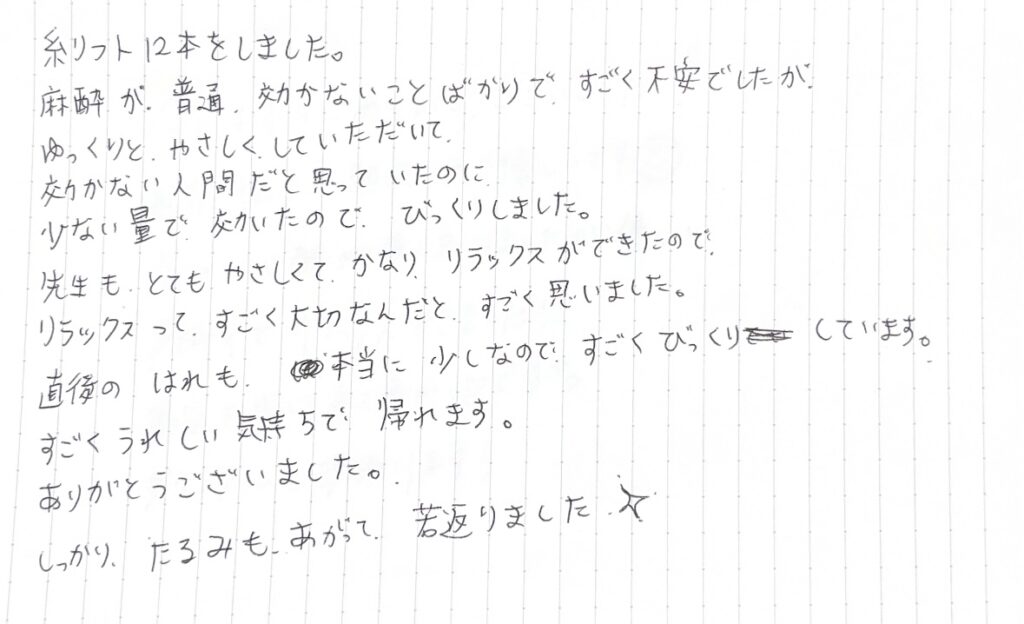 糸リフト12本をしました。
麻酔が、普通、効かないことばかりで、すごく不安でしたが、
ゆっくりと、やさしく、していただいて、
効かない人間だと思っていたのに、
少ない量で、効いたので、びっくりしました。
先生も、とてもやさしくて、かなり、リラックスができたので、
リラックスって、すごく大切なんだと、すごく思いました。
直後の はれも、本当に少しなので、すごくびっくりしています。
すごくうれしい気持ちで、帰れます。
ありがとうございました。
しっかり、たるみも、あがって、若返りました☆